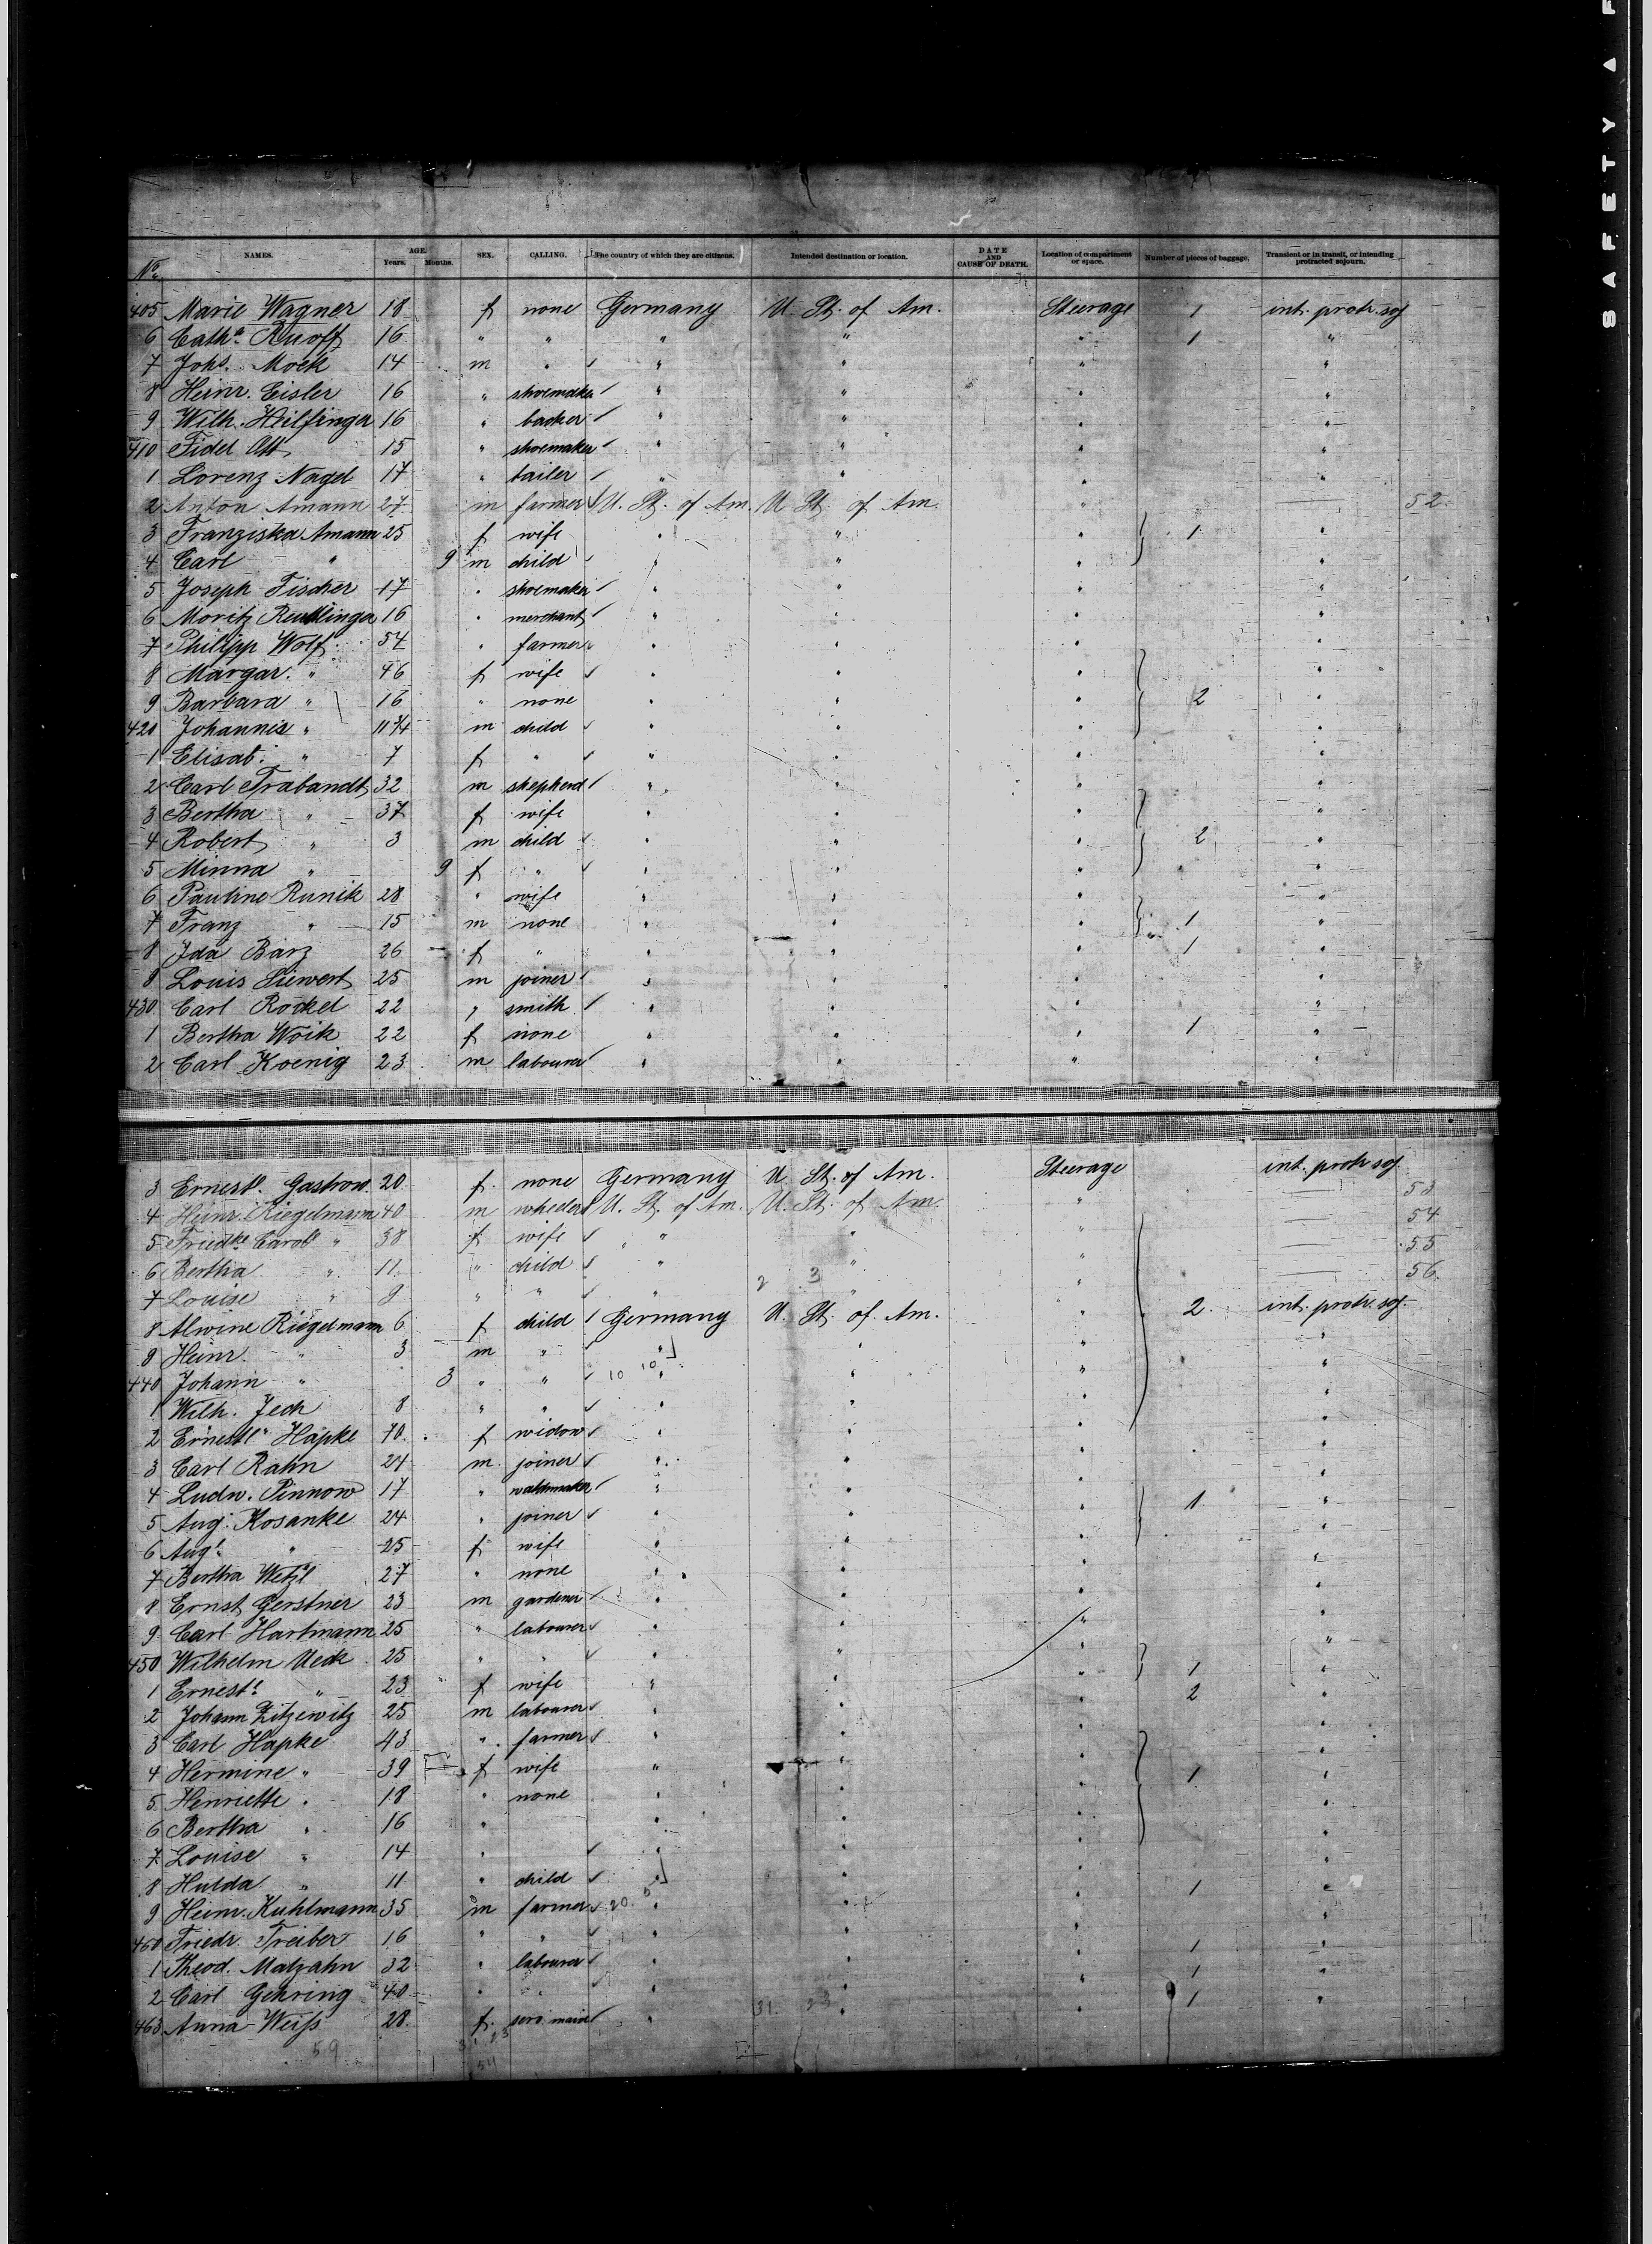 SAFETY ▲ F
No. NAMES. AGE. Years. Months. SEX. CALLING. The country of which they are citizens. Intended destination or location. DATE AND CAUSE OF DEATH. Location of compartment or space. Number of pieces of baggage. Transient or in transit, or intending protracted sojourn.
405 Marie Wagner 18 f none Germany U. St. of Am. Steerage 1 int. protr. soj
6 Cath.a Ruoff 16 " " " " " 1 "
7 Johs. Mock 14 m " " " " "
8 Heinr. Eisler 16 " shoemaker " " " "
9 Wilh. Heilfinger 16 " backer " " " "
410 Fidel Ott 15 " shoemaker " " " "
1 Lorenz Nagel 17 " tailer " " " "
2 Anton Amann 27 m farmer U. St. of Am. U. St. of Am. " — 52.
3 Franziska Amann 25 f wife " " " 1 "
4 Carl " 9 m child " " " "
5 Joseph Fischer 17 " shoemaker " " " "
6 Moritz Reutlinger 16 " merchant " " " "
7 Philipp Wolf 54 " farmer " " " "
8 Margar. " 46 f wife " " " "
9 Barbara " 16 " none " " " 2 "
420 Johannes " 11 3/4 m child " " " "
1 Elisab. " 7 f " " " " "
2 Carl Trabandt 32 m shepherd " " " "
3 Bertha " 37 f wife " " " "
4 Robert " 3 m child " " " 2 "
5 Minna " 9 f " " " " "
6 Pauline Runik 28 " wife " " " "
7 Franz " 15 m none " " " 1 "
8 Ida Barz 26 f " " " " 1 "
8 Louis Siewert 25 m joiner " " " "
430 Carl Rockel 22 " smith " " " "
1 Bertha Woik 22 f none " " " 1 "
2 Carl Koenig 23 m labourer " " " "
3 Ernest.e Gastrow 20 f. none Germany U. St. of Am. Steerage int. protr. soj.
4 Heinr. Riegelmann 40 m wheeler U. St. of Am. U. St. of Am. " — 53
5 Friedke Carol. " 38 f wife " " " — 54
6 Bertha " 11 " child " " " — 55
7 Louise " 9 " " " " " — 56.
2 3
8 Alwine Riegelmann 6 f child Germany U. St. of Am. " 2. int. protr. soj.
9 Heinr. " 3 m " " " " "
440 Johann " 3 " " 10 10 " " " "
1 Wilh. Jech 8 " " " " " "
2 Ernestl. Hapke 70 f widow " " " "
3 Carl Rahn 24 m. joiner " " " "
4 Ludw. Pinnow 17 " watchmaker " " " "
5 Aug. Kosanke 24 " joiner " " " 1 "
6 Aug.e " 25 f wife " " " "
7 Bertha Wetzl 27 " none " " " "
8 Ernst Gerstner 23 m gardener " " " "
9 Carl Hartmann 25 " labourer " " " "
450 Wilhelm Ueck 25 " " " " " "
1 Ernest.e " 23 f wife " " " 1 "
2 Johann Zitzewitz 25 m labourer " " " 2 "
3 Carl Hapke 43 " farmer " " " "
4 Hermine " 39 f wife " " " "
5 Henriette " 18 " none " " " 1 "
6 Bertha " 16 " " " " "
7 Louise " 14 " " " " "
8 Hulda " 11 " child " " " "
9 Heinr. Kuhlmann 35 m farmer 20. 5 " " " 1 "
460 Friedr. Treiber 16 " " " " " "
1 Theod. Malzahn 32 " labourer " " " 1 "
2 Carl Gehring 40 " " " " " 1 "
463 Anna Weiß 28. f. serv. maid " 31. 23 " " 1 "
59 31 23
54